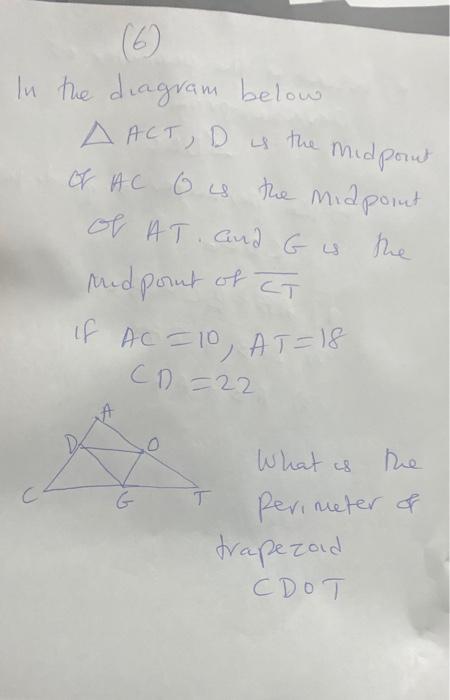 (6)
In the diagram below
△ ACT, D is the midpoint
of AC O is the midpoint
of AT. and G is the
midpoint of CT
if AC = 10, AT = 18
CD = 22
A
D
O
C
G
T
What is the
perimeter of
trapezoid
CDOT